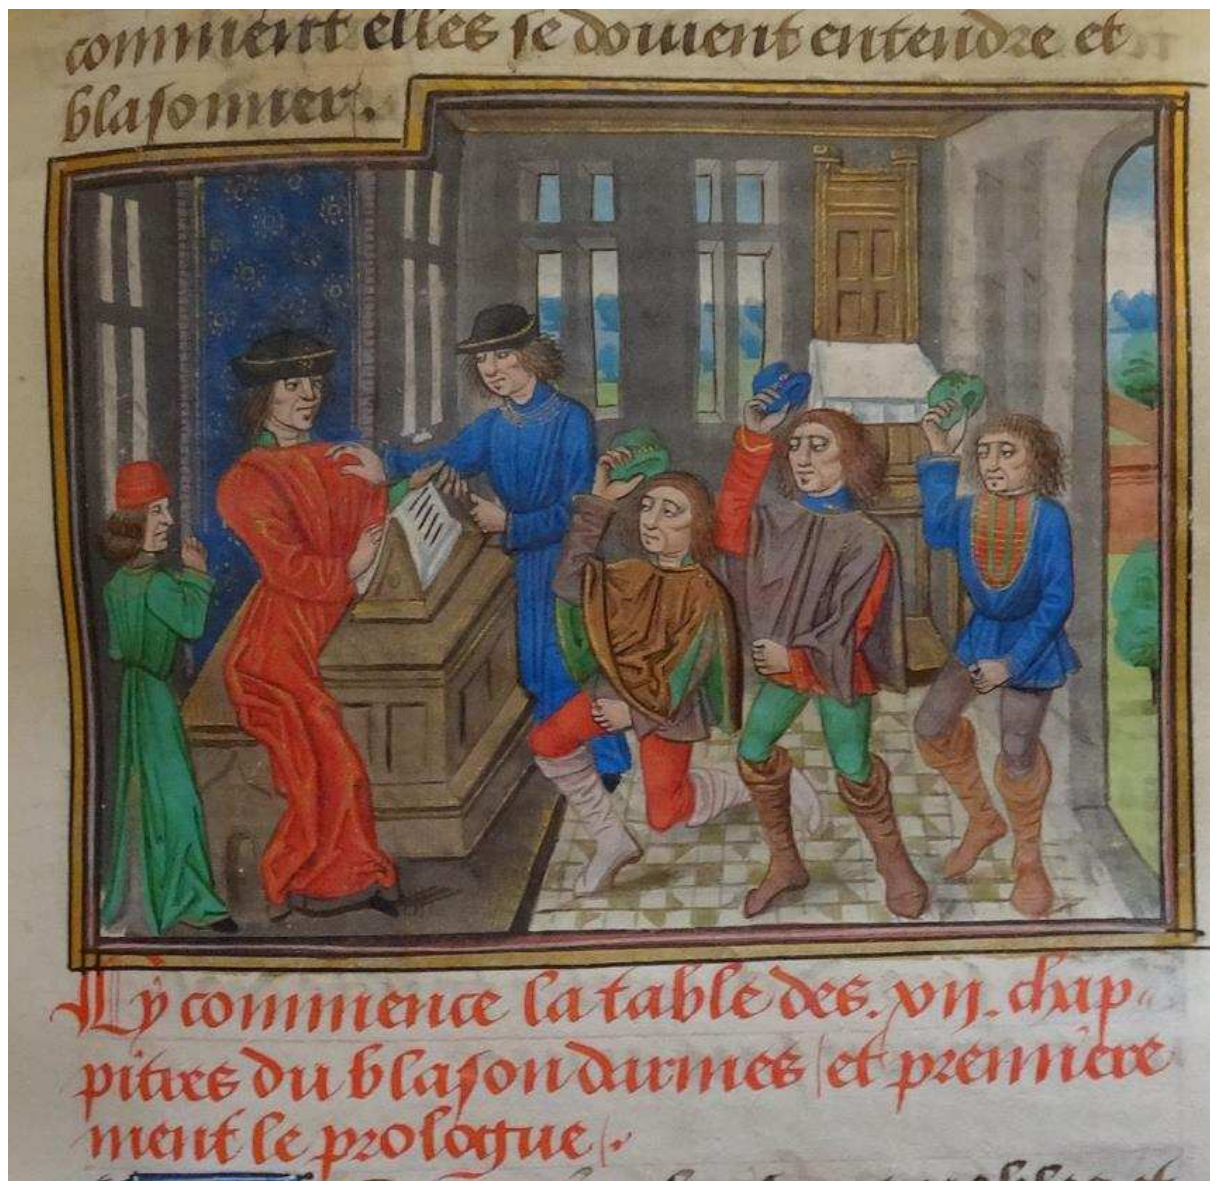 comment elles se doivent entendre et
blasonner.
Cy commence la table des .vij. chap-
pitres du blason darmes / et premiere
ment le prologue /.